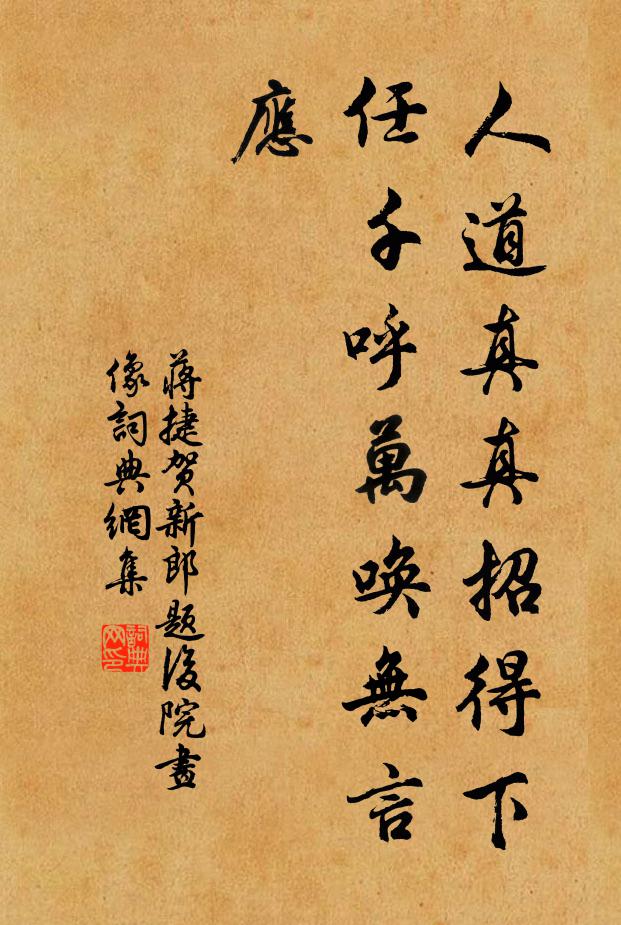 人道真真招得下
任千呼萬唤無言
應
蔣捷賀新郎題後院畫
像詞典網集
詞典
网印